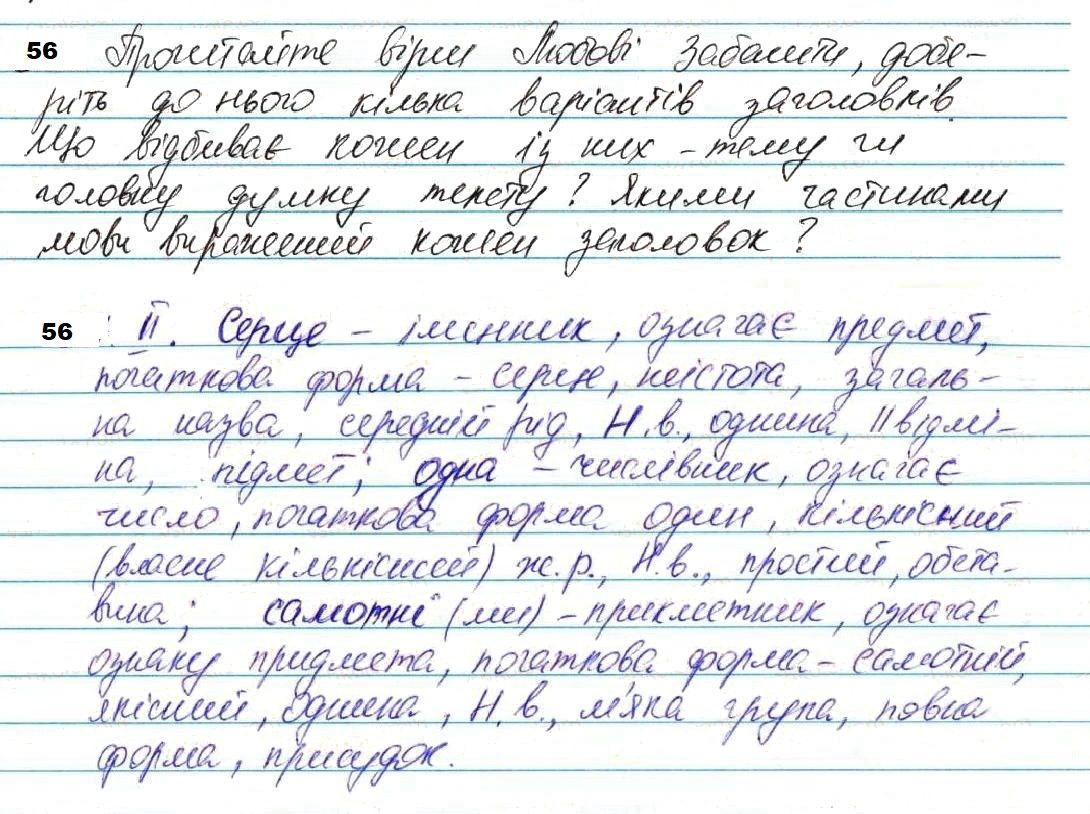 56 Прочитайте вірш Любові Забашти, добе-
ріть до нього кілька варіантів заголовків.
Що відбиває кожен із них - тему чи
головну думку тексту? Якими частинами
мови виражений кожен заголовок?
56 II. Серце – іменник, означає предмет,
початкова форма – серце, неістота, загаль-
на назва, середній рід, Н.в., однина, II відмі-
на, підмет; одна – числівник, означає
число, початкова форма один, кількісний
(власне кількісний) ж.р., Н.в., простий, обста-
вина; самотні (ми) – прикметник, означає
ознаку придмета, початкова форма – самотній,
якісний, однина, Н.в., м'яка група, повна
форма, присудок.